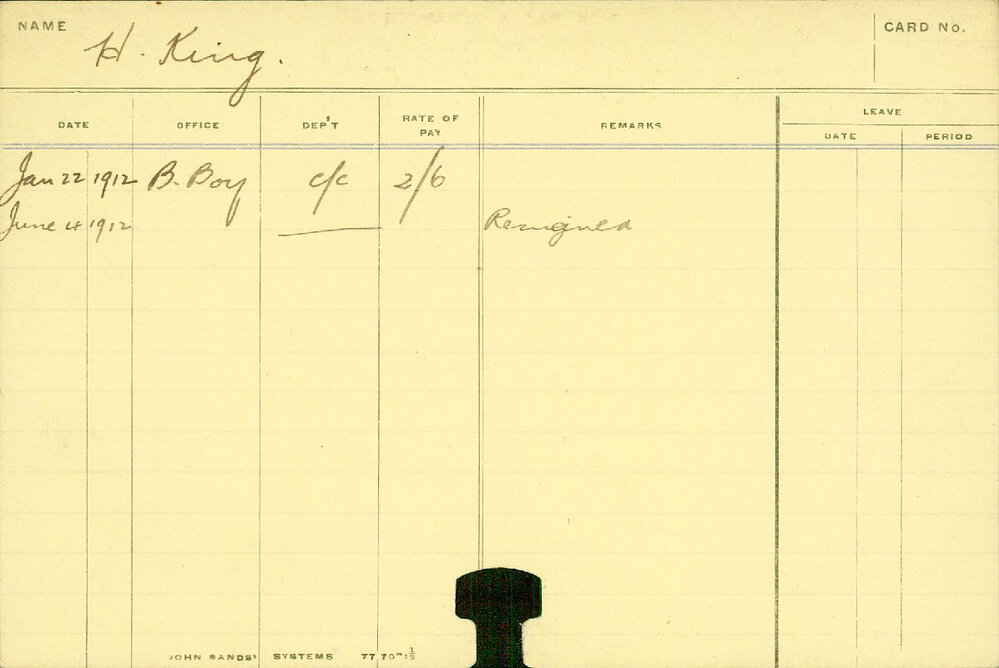 NAME
H. King.
CARD No.
DATE OFFICE DEP'T RATE OF PAY REMARKS LEAVE
DATE PERIOD
Jan 22 1912 B. Boy c/c 2/6
June 4 1912 Resigned
JOHN SANDS' SYSTEMS